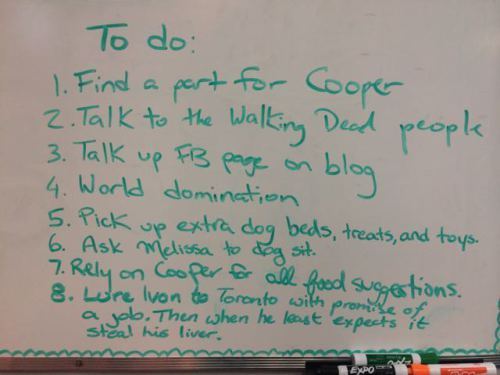 To do:
1. Find a part for Cooper
2. Talk to the Walking Dead people
3. Talk up FB page on blog
4. World domination
5. Pick up extra dog beds, treats, and toys.
6. Ask Melissa to dog sit.
7. Rely on Cooper for all food suggestions.
8. Lure Ivon to Toronto with promise of
a job. Then when he least expects it
steal his liver.
EXPO